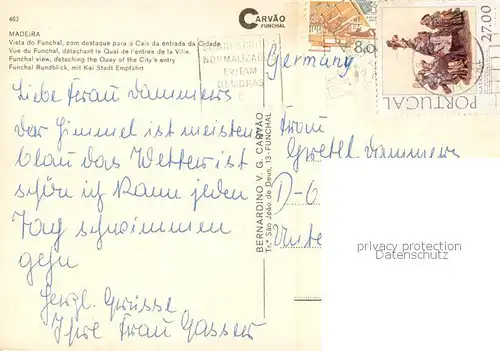 462
MADEIRA
Vista do Funchal, com destaque para o Cais da entrada da Cidade
Vue du Funchal, détachant le Quai de l'entrée de la Ville
Funchal view, detaching the Quay of the City's entry
Funchal Rundblick, mit Kai Stadt Empfahrt
CARVÃO
FUNCHAL
NORMALIZAD
EVITAM
DEMORAS
8,0
27.00
PORTUGAL
Germany
Liebe Frau Dammers
der Himmel ist meisten
blau das Wetter ist
schön ich kann jeden
Tag schwimmen
gehn
Herzl. Grüsse
Ihre Frau Gasser
BERNARDINO V. G. CARVÃO
Tr.ª São João de Deus, 13 - FUNCHAL
Frau
Gretel Dammers
D-6
Unte
privacy protection
Datenschutz